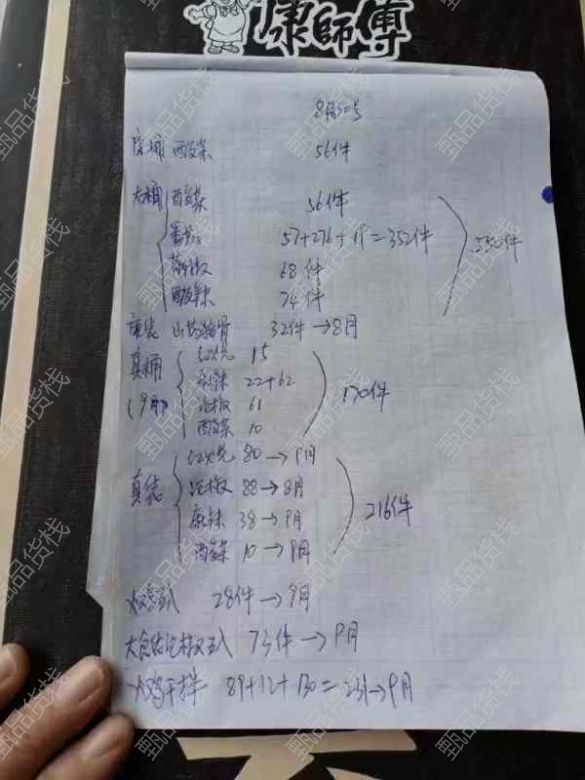 康師傅
8月30号
康桶 酸菜 56件
大桶 酸菜 56件
番茄 57+276+19=352件 550件
藤椒 68件
酸辣 74件
康袋 山药猪骨 32件→8月
真桶 红烧 15
22+62 170件
(9月) 椒 61
酸菜 10
真袋 红烧 80→9月
椒 88→8月
麻辣 38→9月 216件
酸菜 10→9月
火鸡 28件→9月
大食袋 椒 73件→9月
火鸡干拌 89+12+130=231→9月
甄品货栈